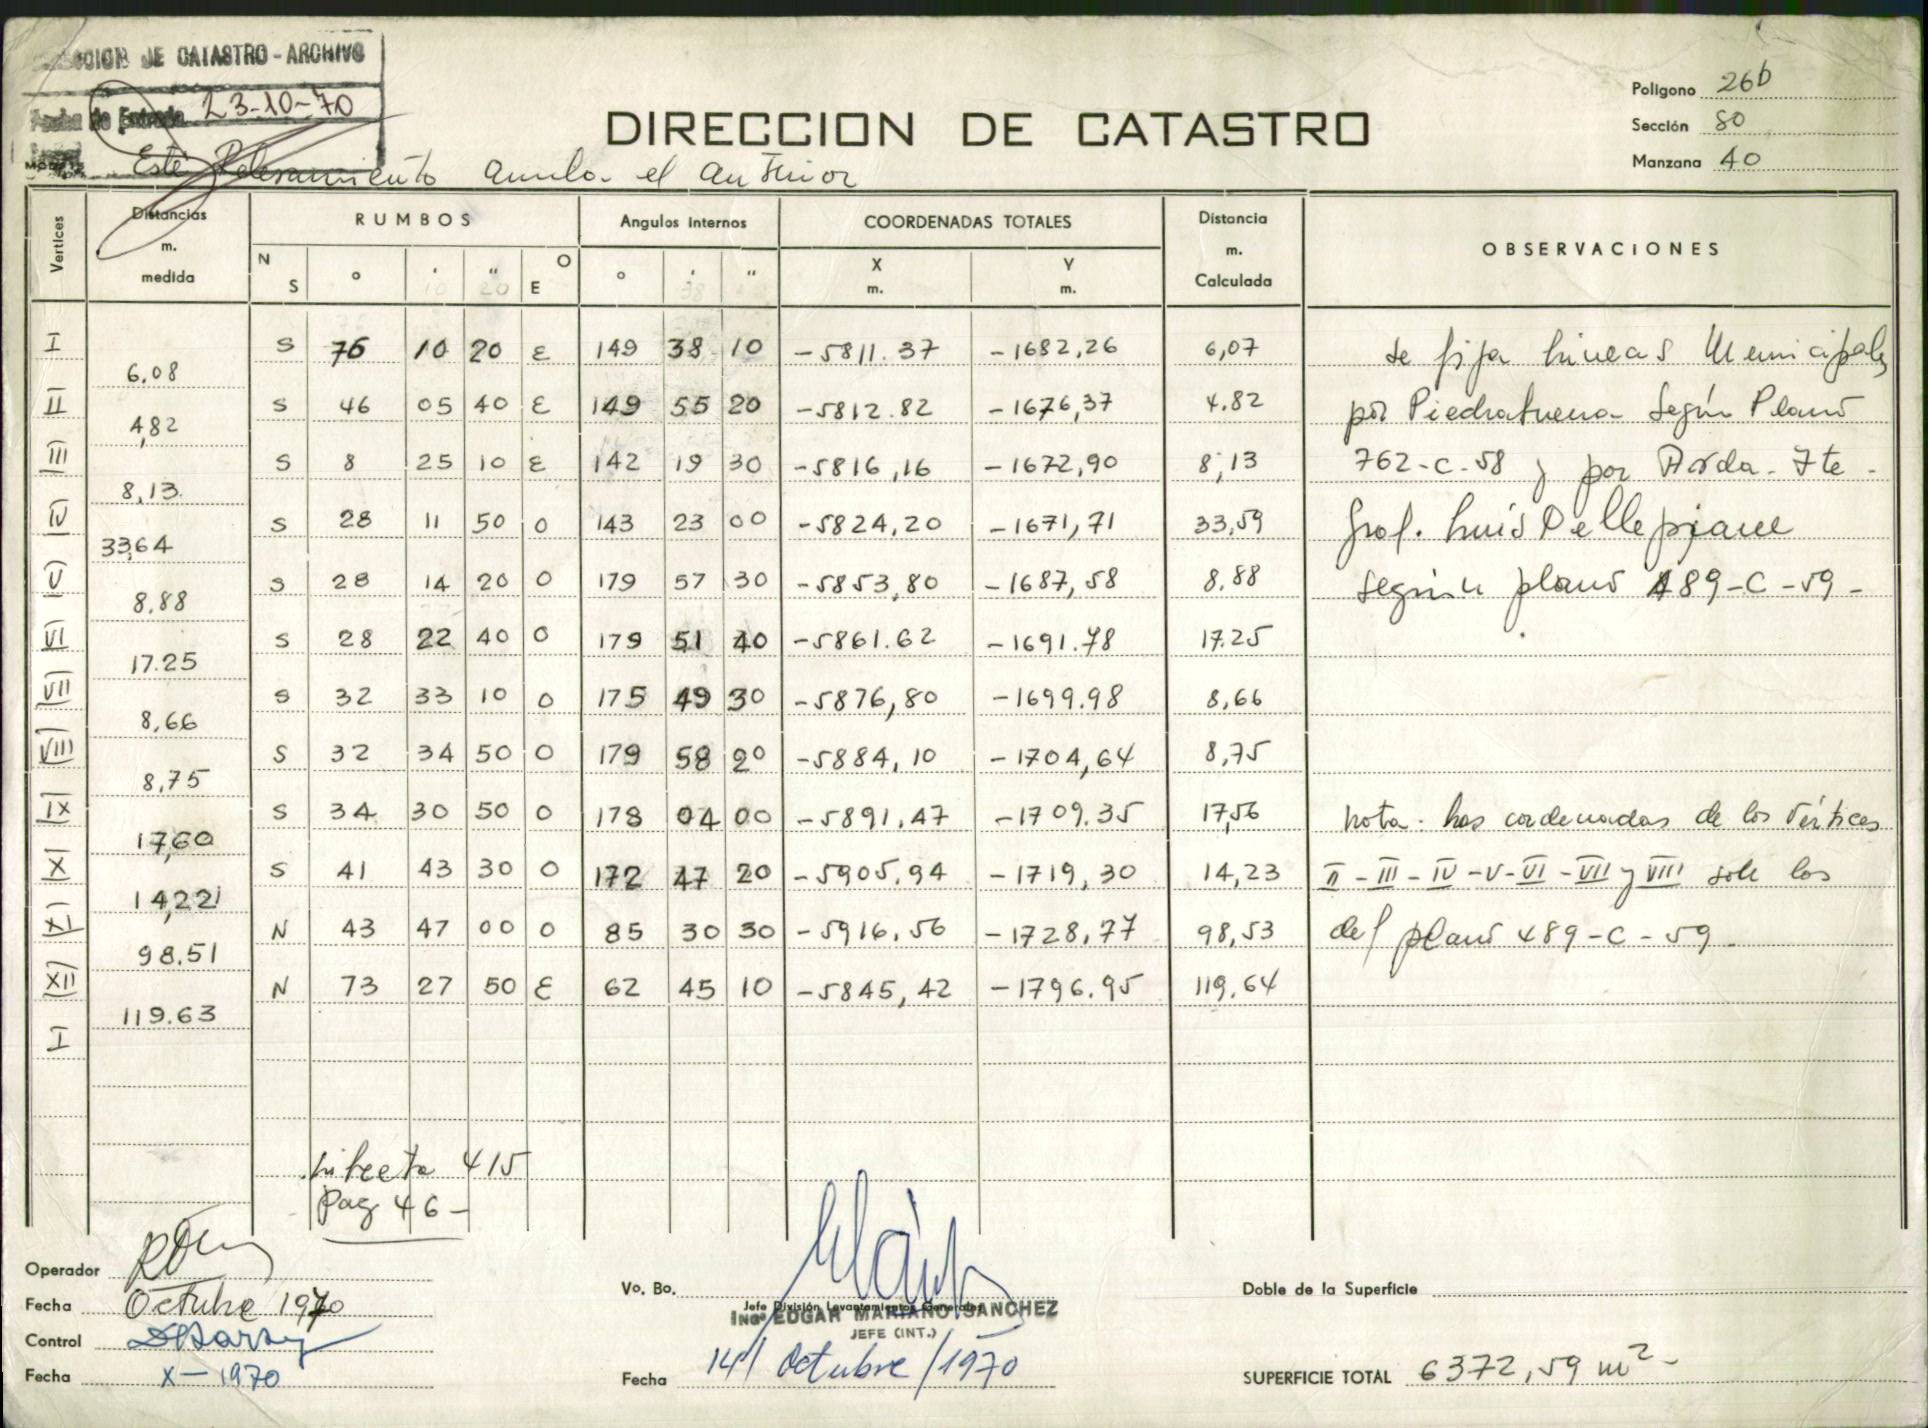 DIRECCION DE CATASTRO - ARCHIVO
Fecha de Entrada 23-10-70
DIRECCION DE CATASTRO
Poligono 26b
Sección 80
Manzana 40
Este Relevamiento anula el anterior
Vertices Distancias m. medida RUMBOS Angulos Internos COORDENADAS TOTALES Distancia m. Calculada OBSERVACIONES
N S ° ' " O E ° ' " X m. Y m.
I S 76 10 20 E 149 38 10 -5811.37 -1682,26 6,07 se fija Lineas Municipales
6,08
II S 46 05 40 E 149 55 20 -5812.82 -1676,37 4.82 por Piedrabuena Según Plano
4,82
III S 8 25 10 E 142 19 30 -5816,16 -1672,90 8,13 762-C-58 y por Avda. Tte.
8,13
IV S 28 11 50 O 143 23 00 -5824,20 -1671,71 33,59 Gral. Luis Dellepiane
33,64
V S 28 14 20 O 179 57 30 -5853,80 -1687,58 8,88 según plano 489-C-59-
8,88
VI S 28 22 40 O 179 51 40 -5861.62 -1691.78 17.25
17.25
VII S 32 33 10 O 175 49 30 -5876,80 -1699.98 8,66
8,66
VIII S 32 34 50 O 179 58 20 -5884,10 -1704,64 8,75
8,75
IX S 34 30 50 O 178 04 00 -5891,47 -1709.35 17,56 Nota. Las cordenadas de los Vértices
17,60
X S 41 43 30 O 172 47 20 -5905,94 -1719,30 14,23 II-III-IV-V-VI-VII y VIII sale los
14,22
XI N 43 47 00 O 85 30 30 -5916,56 -1728,77 98,53 del plano 489-C-59
98.51
XII N 73 27 50 E 62 45 10 -5845,42 -1796.95 119.64
119.63
I
Libreta 415
Pag 46-
Operador
Fecha Octubre 1970
Control
Fecha X-1970
Vo. Bo.
Jefe División Levantamientos Generales
Ingº EDGAR MARIANO SANCHEZ
JEFE (INT.)
Fecha 14/Octubre/1970
Doble de la Superficie
SUPERFICIE TOTAL 6372,59 m²-